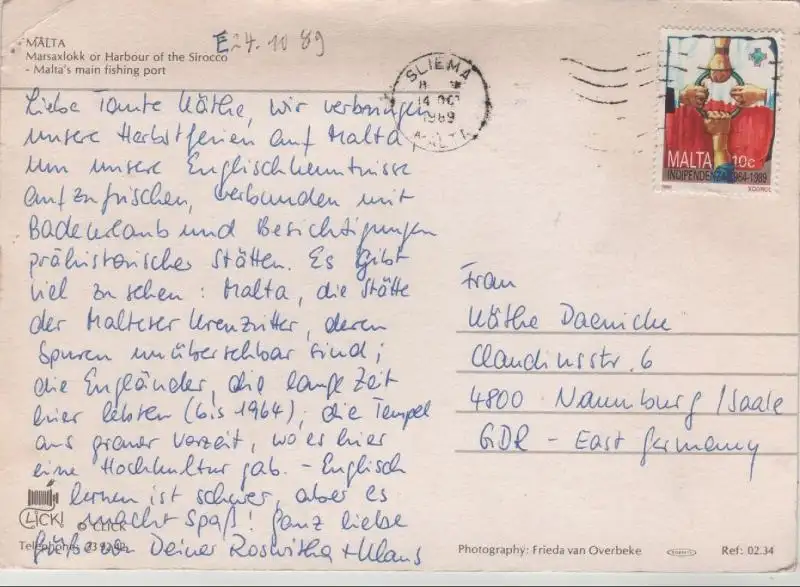 MALTA
Marsaxlokk or Harbour of the Sirocco
- Malta's main fishing port
E 24.10 89
SLIEMA
14 OC
1989
MALTA
MALTA 10c
INDIPENDENZA 1964-1989
Liebe Tante Käthe, wir verbringen
unsere Herbstferien auf Malta
um unsere Englischkenntnisse
aufzufrischen, verbunden mit
Badeurlaub und Besichtigungen
prähistorischer Stätten. Es gibt
viel zu sehen: Malta, die Stätte
der Malteser Kreuzritter, deren
Spuren unübersehbar sind;
die Engländer, die lange Zeit
hier lebten (bis 1964); die Tempel
aus grauer Vorzeit, wo es hier
eine Hochkultur gab. - Englisch
lernen ist schwer, aber es
macht Spaß! Ganz liebe
Grüße von Deiner Roswitha + Klaus
Frau
Käthe Daenicke
Claudiusstr. 6
4800 Naumburg/Saale
GDR - East Germany
CLICK!
© CLICK
Telephone:
Photography: Frieda van Overbeke
Ref: 02.34